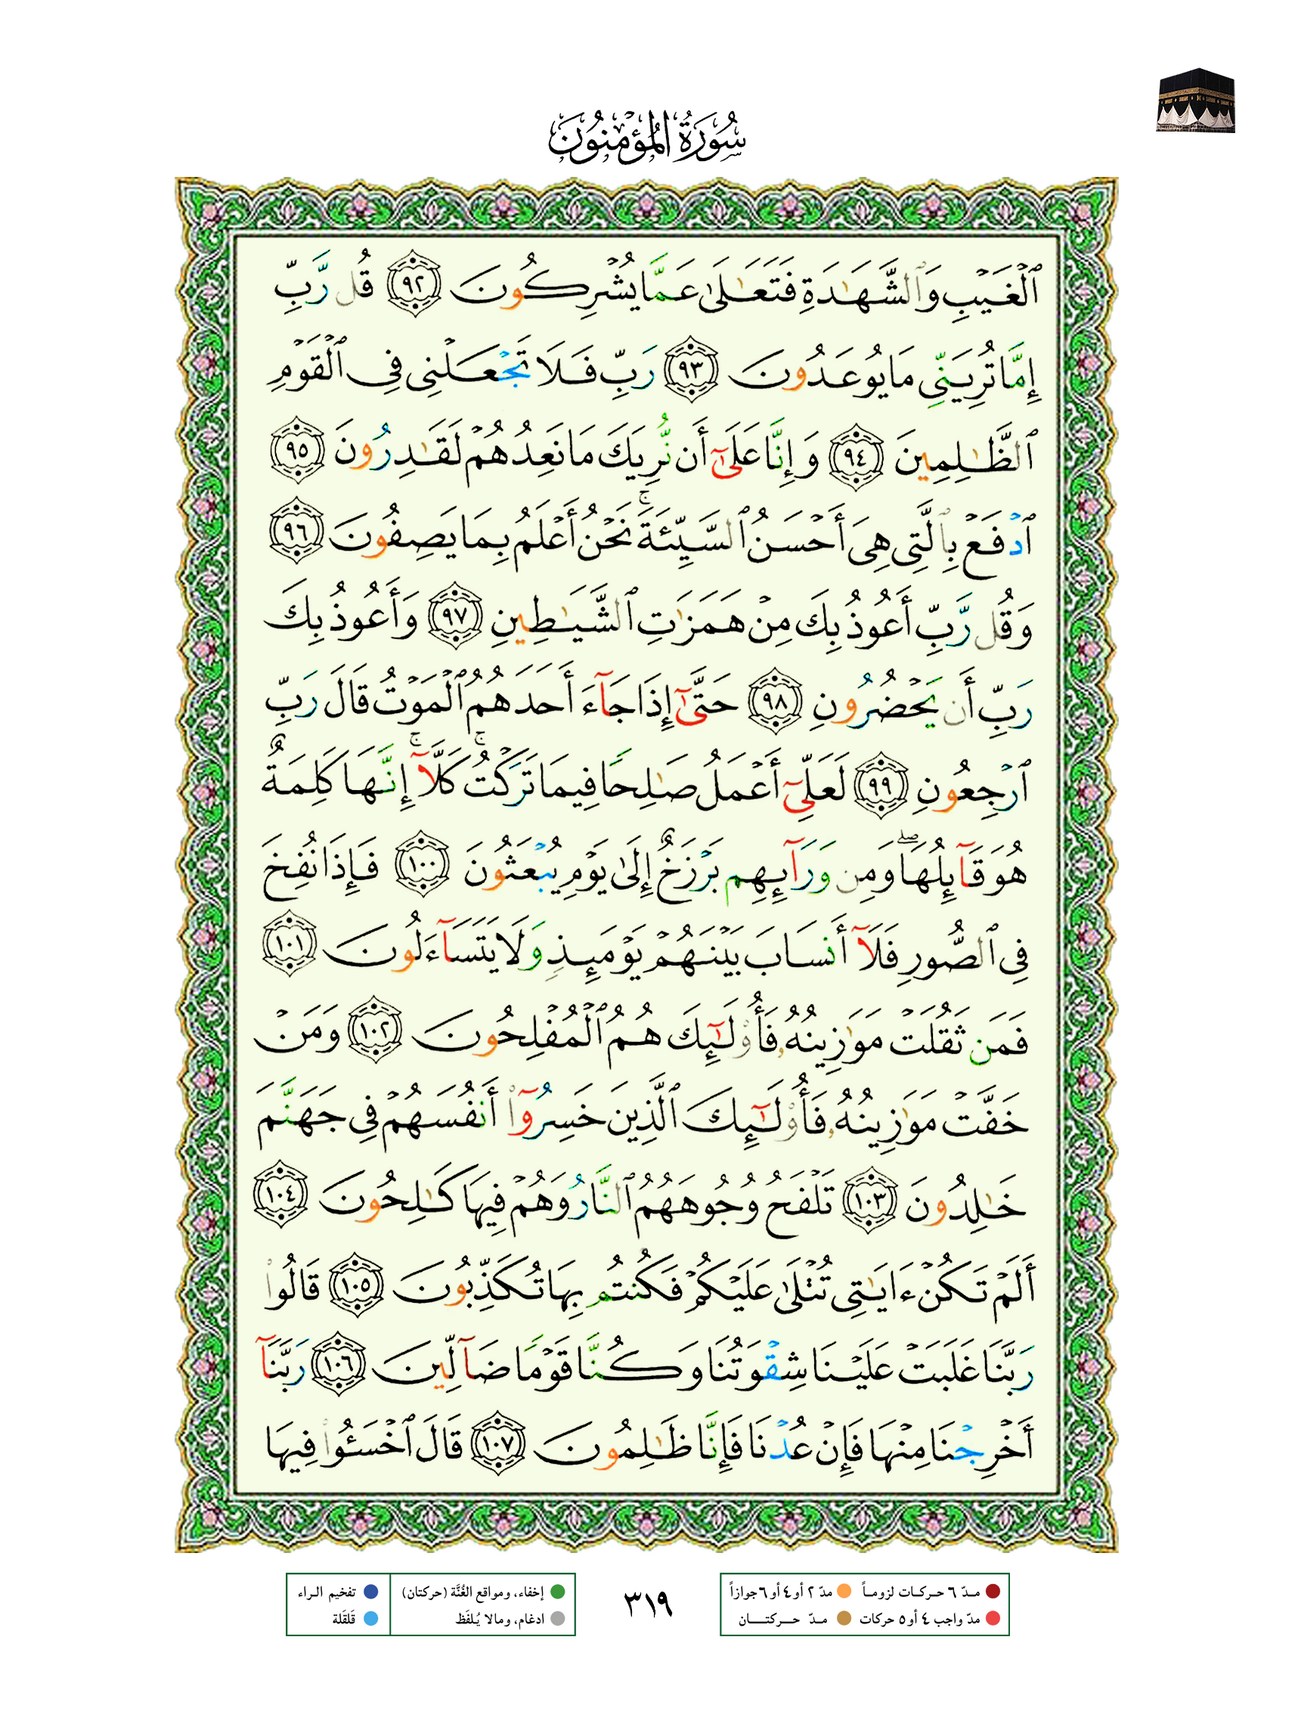 سُورَةُ الْمُؤْمِنُونَ
ٱلْغَيْبِ وَٱلشَّهَٰدَةِ فَتَعَٰلَىٰ عَمَّا يُشْرِكُونَ ٩٢ قُل رَّبِّ
إِمَّا تُرِيَنِّي مَا يُوعَدُونَ ٩٣ رَبِّ فَلَا تَجْعَلْنِي فِي ٱلْقَوْمِ
ٱلظَّٰلِمِينَ ٩٤ وَإِنَّا عَلَىٰٓ أَن نُّرِيَكَ مَا نَعِدُهُمْ لَقَٰدِرُونَ ٩٥
ٱدْفَعْ بِٱلَّتِي هِيَ أَحْسَنُ ٱلسَّيِّئَةَ ۚ نَحْنُ أَعْلَمُ بِمَا يَصِفُونَ ٩٦
وَقُل رَّبِّ أَعُوذُ بِكَ مِنْ هَمَزَٰتِ ٱلشَّيَٰطِينِ ٩٧ وَأَعُوذُ بِكَ
رَبِّ أَن يَحْضُرُونِ ٩٨ حَتَّىٰٓ إِذَا جَآءَ أَحَدَهُمُ ٱلْمَوْتُ قَالَ رَبِّ
ٱرْجِعُونِ ٩٩ لَعَلِّيٓ أَعْمَلُ صَٰلِحًا فِيمَا تَرَكْتُ ۚ كَلَّآ ۚ إِنَّهَا كَلِمَةٌ
هُوَ قَآئِلُهَا ۖ وَمِن وَرَآئِهِم بَرْزَخٌ إِلَىٰ يَوْمِ يُبْعَثُونَ ١٠٠ فَإِذَا نُفِخَ
فِي ٱلصُّورِ فَلَآ أَنسَابَ بَيْنَهُمْ يَوْمَئِذٍ وَلَا يَتَسَآءَلُونَ ١٠١
فَمَن ثَقُلَتْ مَوَٰزِينُهُۥ فَأُو۟لَٰٓئِكَ هُمُ ٱلْمُفْلِحُونَ ١٠٢ وَمَنْ
خَفَّتْ مَوَٰزِينُهُۥ فَأُو۟لَٰٓئِكَ ٱلَّذِينَ خَسِرُوٓا۟ أَنفُسَهُمْ فِي جَهَنَّمَ
خَٰلِدُونَ ١٠٣ تَلْفَحُ وُجُوهَهُمُ ٱلنَّارُ وَهُمْ فِيهَا كَٰلِحُونَ ١٠٤
أَلَمْ تَكُنْ ءَايَٰتِي تُتْلَىٰ عَلَيْكُمْ فَكُنتُم بِهَا تُكَذِّبُونَ ١٠٥ قَالُوا۟
رَبَّنَا غَلَبَتْ عَلَيْنَا شِقْوَتُنَا وَكُنَّا قَوْمًا ضَآلِّينَ ١٠٦ رَبَّنَآ
أَخْرِجْنَا مِنْهَا فَإِنْ عُدْنَا فَإِنَّا ظَٰلِمُونَ ١٠٧ قَالَ ٱخْسَـُٔوا۟ فِيهَا
مـدّ ٦ حـركـات لزومـاً مدّ ٢ أو ٤ أو ٦ جوازاً
مدّ واجب ٤ أو ٥ حركات مـدّ حـــركتـــــان
٣١٩
إخفاء، ومواقع الغُنَّة (حركتان) تفخيم الـراء
ادغام، ومالا يُـلفَظ قَلقَلة